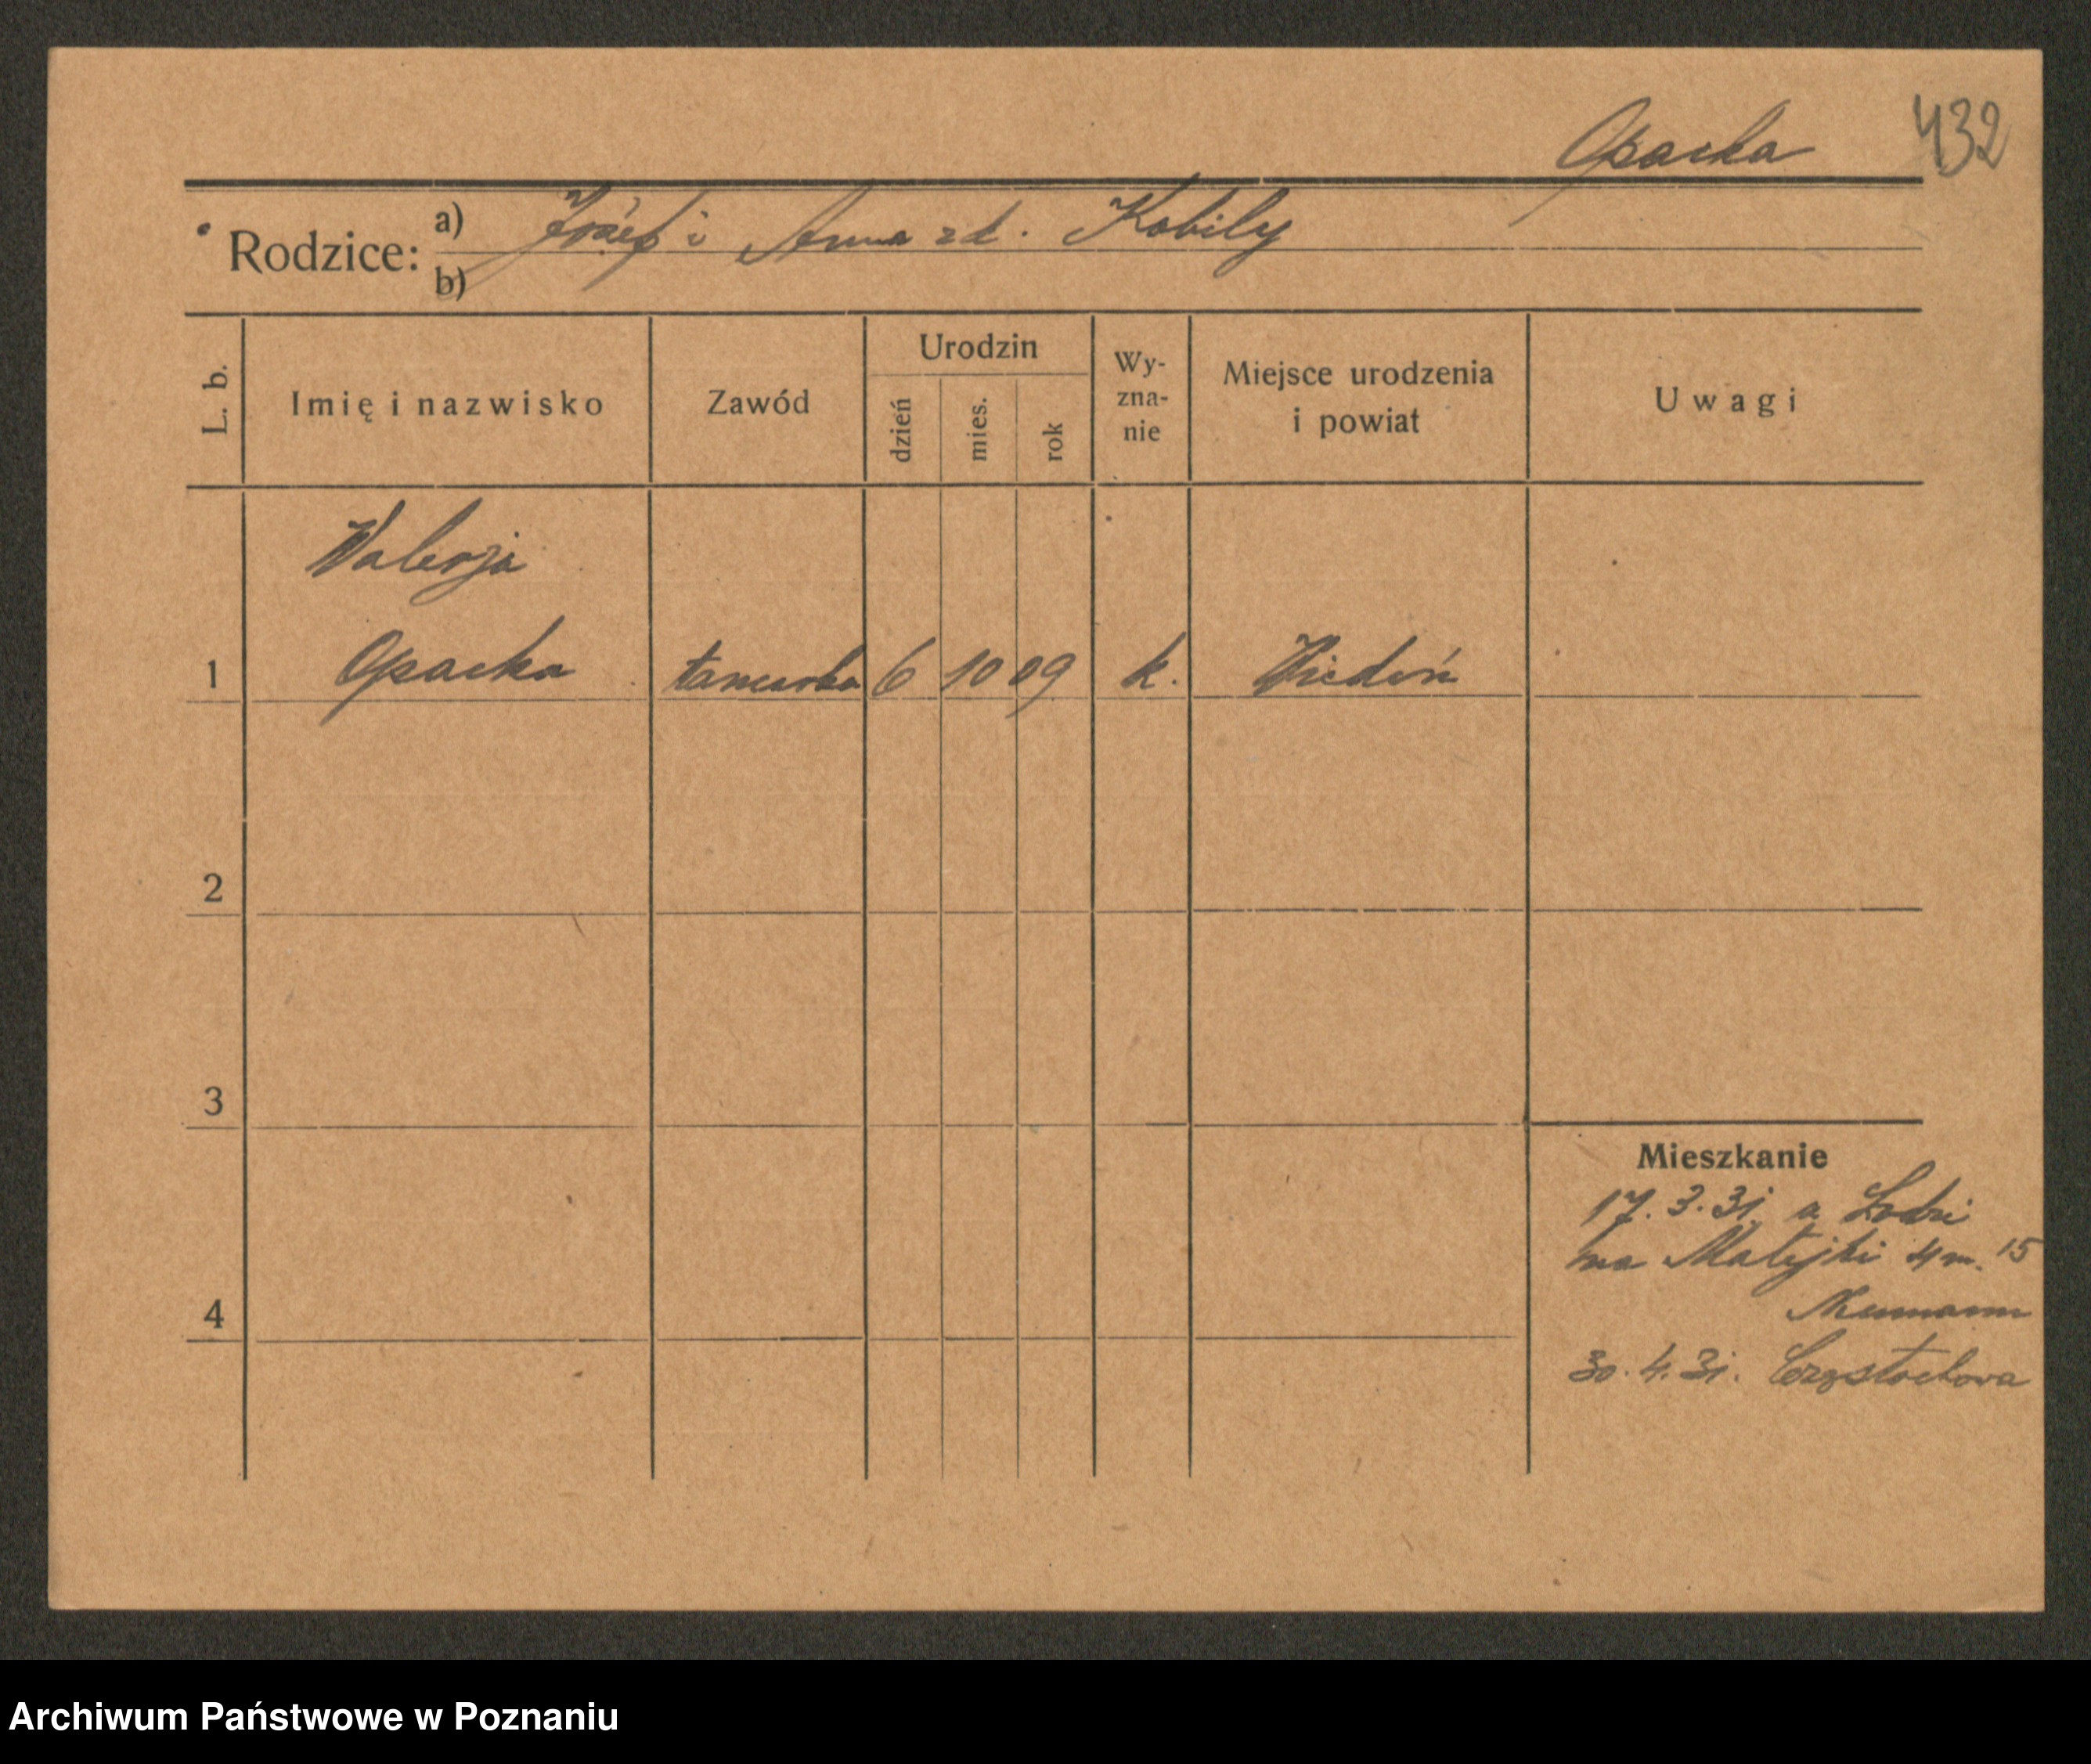 Opacka 432
Rodzice: a) Józef i Anna zd. Kobily
b)
L. b. Imię i nazwisko Zawód Urodzin dzień mies. rok Wy-zna-nie Miejsce urodzenia i powiat Uwagi
Walerja
1 Opacka tancerka 6 10 09 k. Wiedeń
2
3
Mieszkanie
17.3.31 z Łodzi
na Matejki 4 m. 15
4 Neumann
30.4.31. Częstochowa
Archiwum Państwowe w Poznaniu